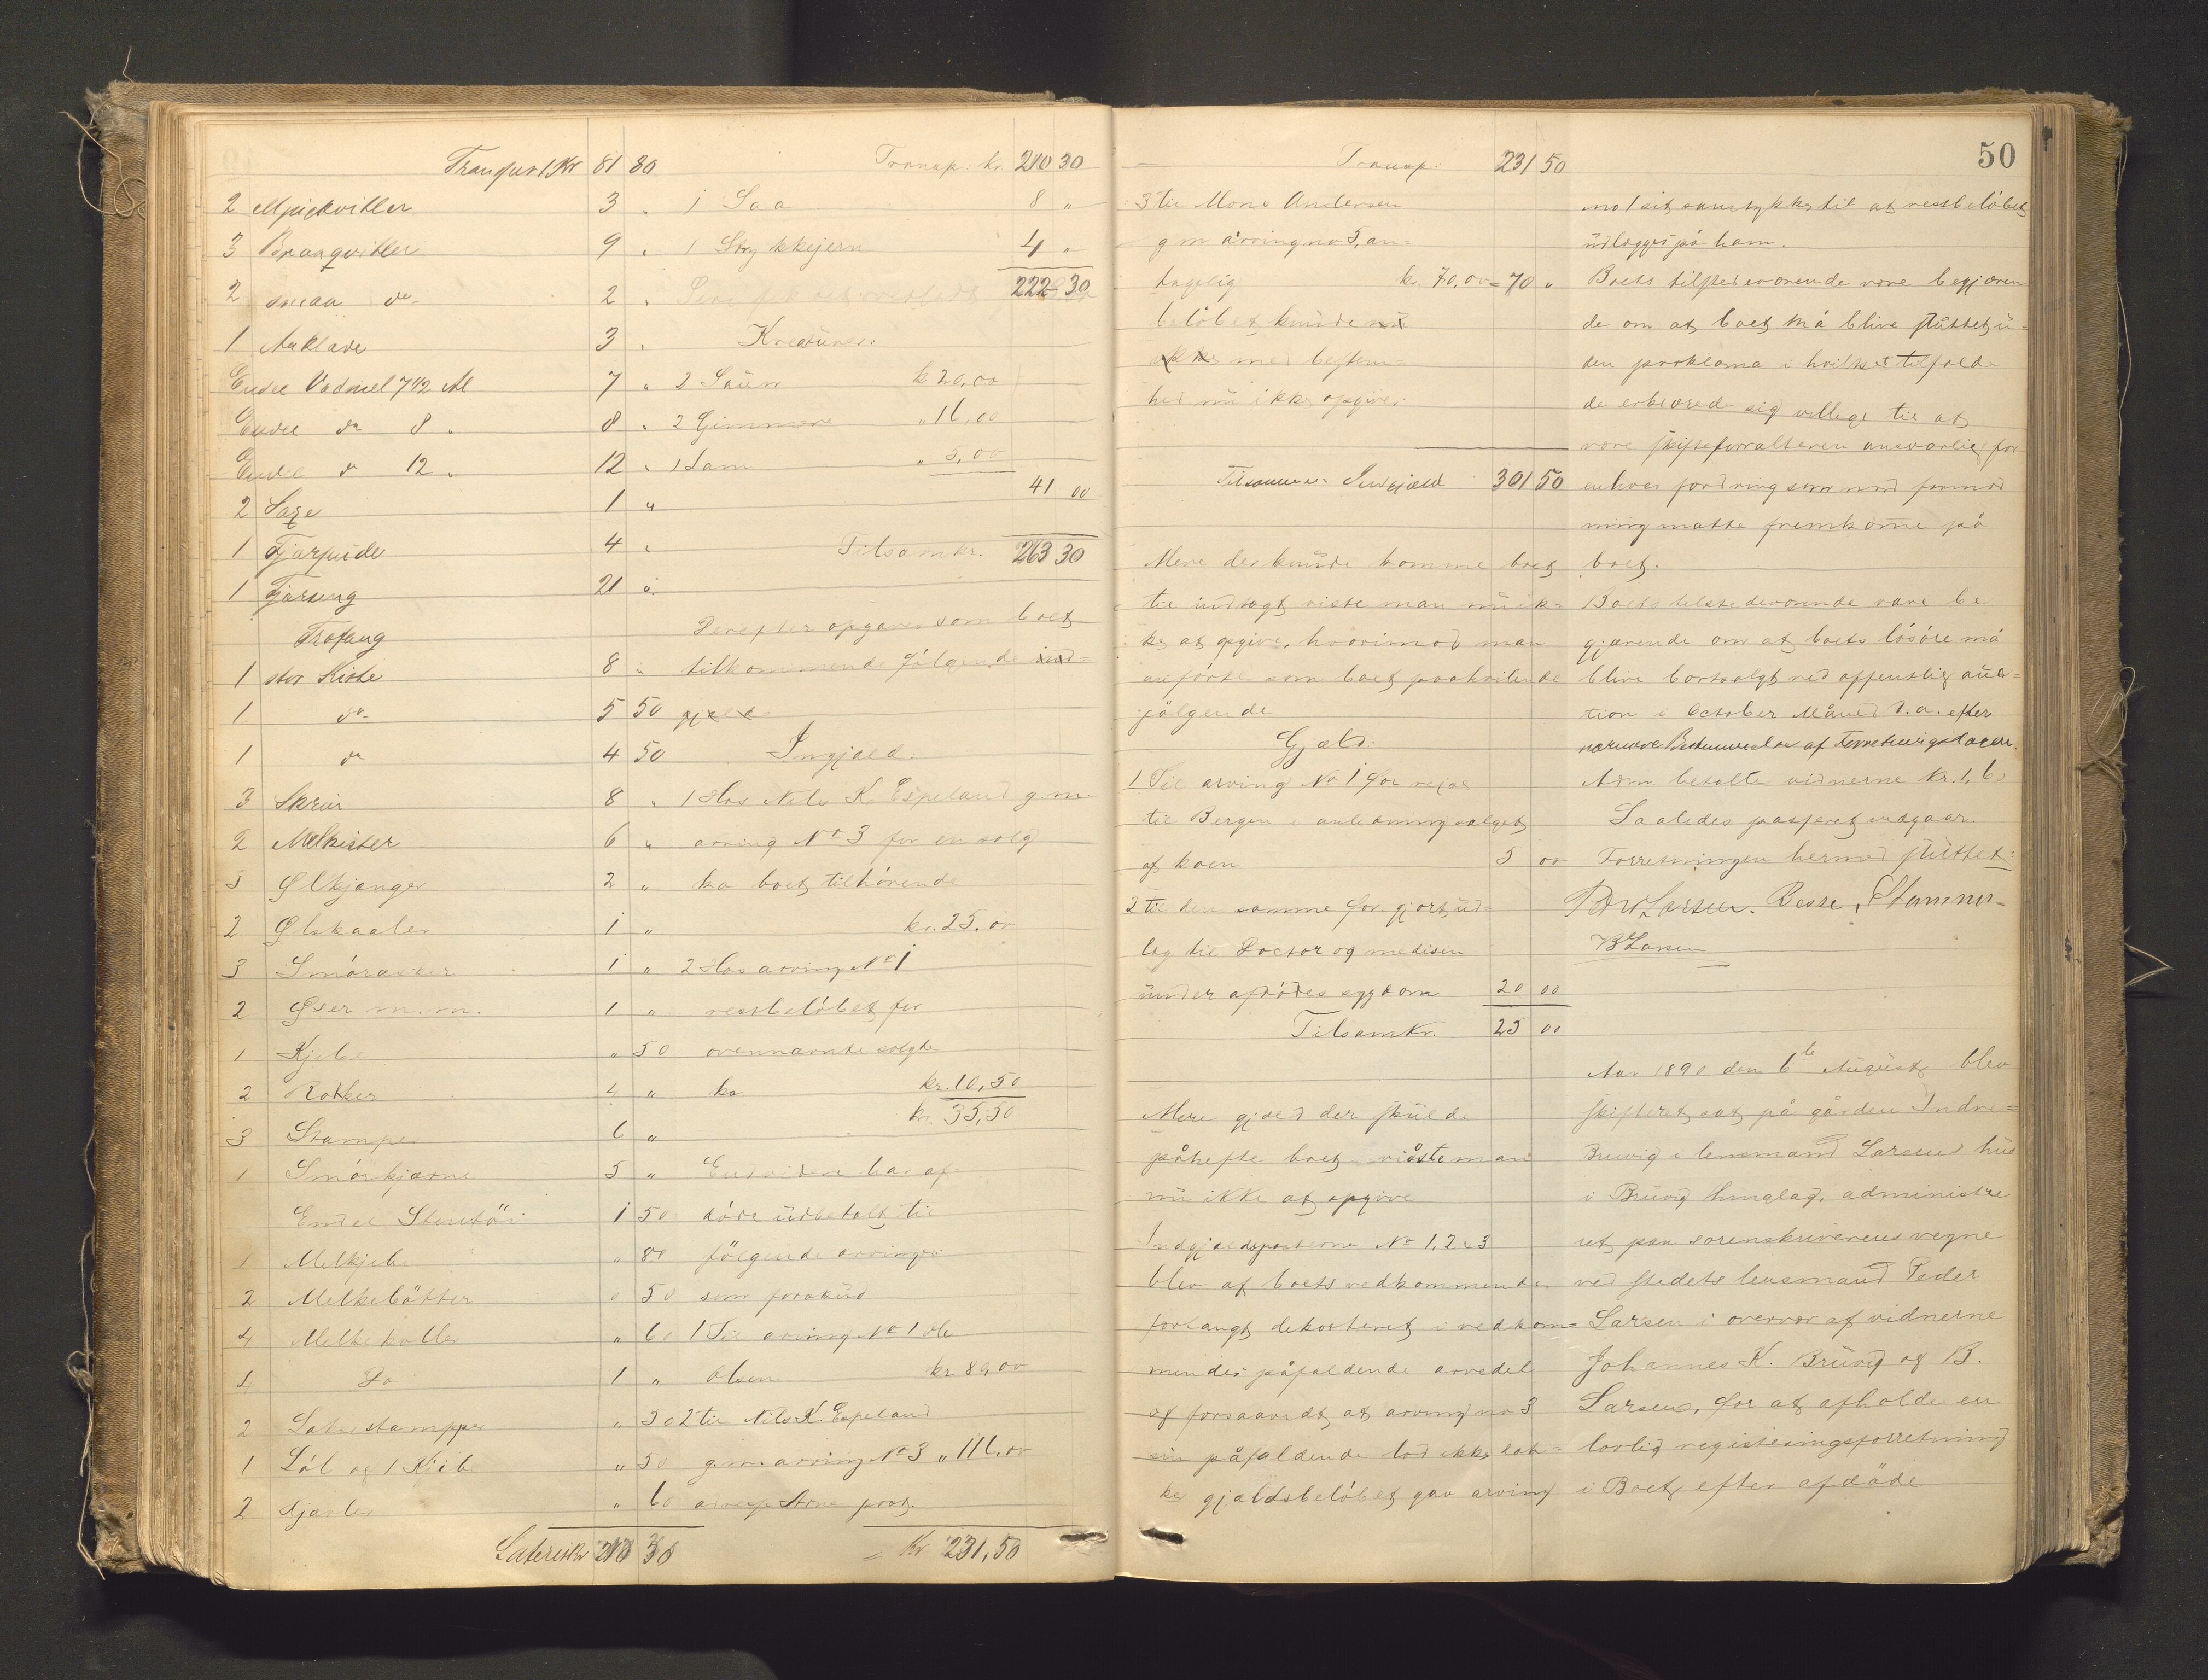 Transport Kr 81 80
2 Spiekvitler 3 "
3 Bragqvitler 9 "
2 smaa do 2 "
1 Aaklæde 3 "
Endel Vadmel 7 1/2 Al 7 "
Endel do 8 " 8 "
Endel do 12 " 12 "
2 Saxe 1 "
1 4 "
1 21 "
Træfang
1 stor Kiste 8 "
1 do 5 50
1 do 4 50
3 Skrin 8 "
2 Melkister 6 "
5 Ølkjenger 2 "
2 Ølskaaler 1 "
3 Smörasker 1 "
2 Øser m. m. 1 "
1 Kjebe " 50
2 Rokker 4 "
3 Stamper 6 "
1 Smörkjærne 5 "
Endel Stentöi 1 50
1 Melkjebe " 80
2 Melkebötter " 50
4 Melkekoller " 60
4 Do 1 "
2 Laknestamper " 50
1 Sól og 1 Kjibe " 50
2 " 60
Lateris kr 210 30
Transp: kr. 210 30
1 Saa 8 "
1 Strykkejern 4 "
222 30
Kreaturer:
2 Sauer kr 20,00
2 Gimmere " 16,00
1 Lam " 5,00
41 00
Tilsam kr. 263 30
Derefter opgaves som boet
tilkommende fölgende ind=
gjæld
Ingjæld:
1 Hos Nils K. Espeland g.m.
arving No 3 for en solg
ko boet tilhörende
kr. 25.00
2 Hos arving No 1
restbelöbet for
ovennævnte solgte
ko kr. 10,50
kr. 35,50
Endvidere har af=
döde udbetalt til
fölgende arvinger
som forskud
1 Til arving No 1 Ole
Olsen kr 80,00
2 til Nils K. Espeland
g.m. arving No 3 " 116,00
= Kr 231,50
50
Transp: 231 50
3 til Mons Andersen
g m arving no 5, an=
tagelig kr. 70,00 = 70 "
belöbet kunde nü
ikke med bestem=
hed nü ikke opgives
Tilsammen Indgjæld 301 50
Mere der kunde komme boet
til indtægt viste man nü ik=
ke at opgive, hvorimod man
anförte som boet paahvilende
fölgende
Gjæld:
1 Til arving No 1 for rejse
til Bergen i anledning salget
af koen 5 00
2 til den samme for gjort üd=
læg til Doctor og medisin
ünder afdödes sygdom 20 00
Tilsam Kr. 25 00
Mere gjæld der skulde
påhefte boet vidste man
nü ikke at opgive
Indgjældsposterne No 1, 2 & 3
blev af boets vedkommende
forlangt dekorteret i vedkom=
mendes påfaldende arvedel
og forsaavidt at arving no 3
sin påfaldende lod ikke dæk=
ker gjældsbelöbet gav arving
no 1 sit samtykke til at restbelöbet
üdlægges på ham.
Boets tilstedeværende vare begjæren
de om at boet må blive sluttet ü=
den proklama i hvilket tilfælde
de erklærede sig villige til at
være skifteforvalteren ansvarlig for
enhver fordring som mod formod
ning måtte fremkomme på
boet.
Boets tilstedeværende vare be
gjærende om at boets lösöre må
blive bortsolgt ved offentlig auk=
tion i October Måned d.a. efter
nærmere Bestemmelse af Forretningslederen.
Adm. betalte vidnerne Kr. 1,60
Saaledes passeret udgaar.
Forretningen hermed sluttet:
B Larsen
Aar 1890 den 6te August blev
skifteret sat på gården Indre=
Bruvig i lensmand Larsens hüs
i Brüvig thinglag, administre
ret paa sorenskriverens vegne
ved stedets lensmand Peder
Larsen i overvær af vidnerne
Johannes K. Brüvig og B.
Larsen, for at afholde en
lovlig registeringsforretning
i Boet efter afdöde